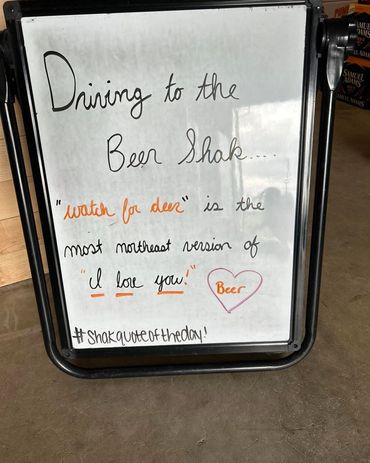 Driving to the
Beer Shak....
"watch for deer" is the
most northeast version of
"I love you!"
Beer
#shakquoteoftheday!
SAMUEL
ADAMS
SAMUEL
ADAMS